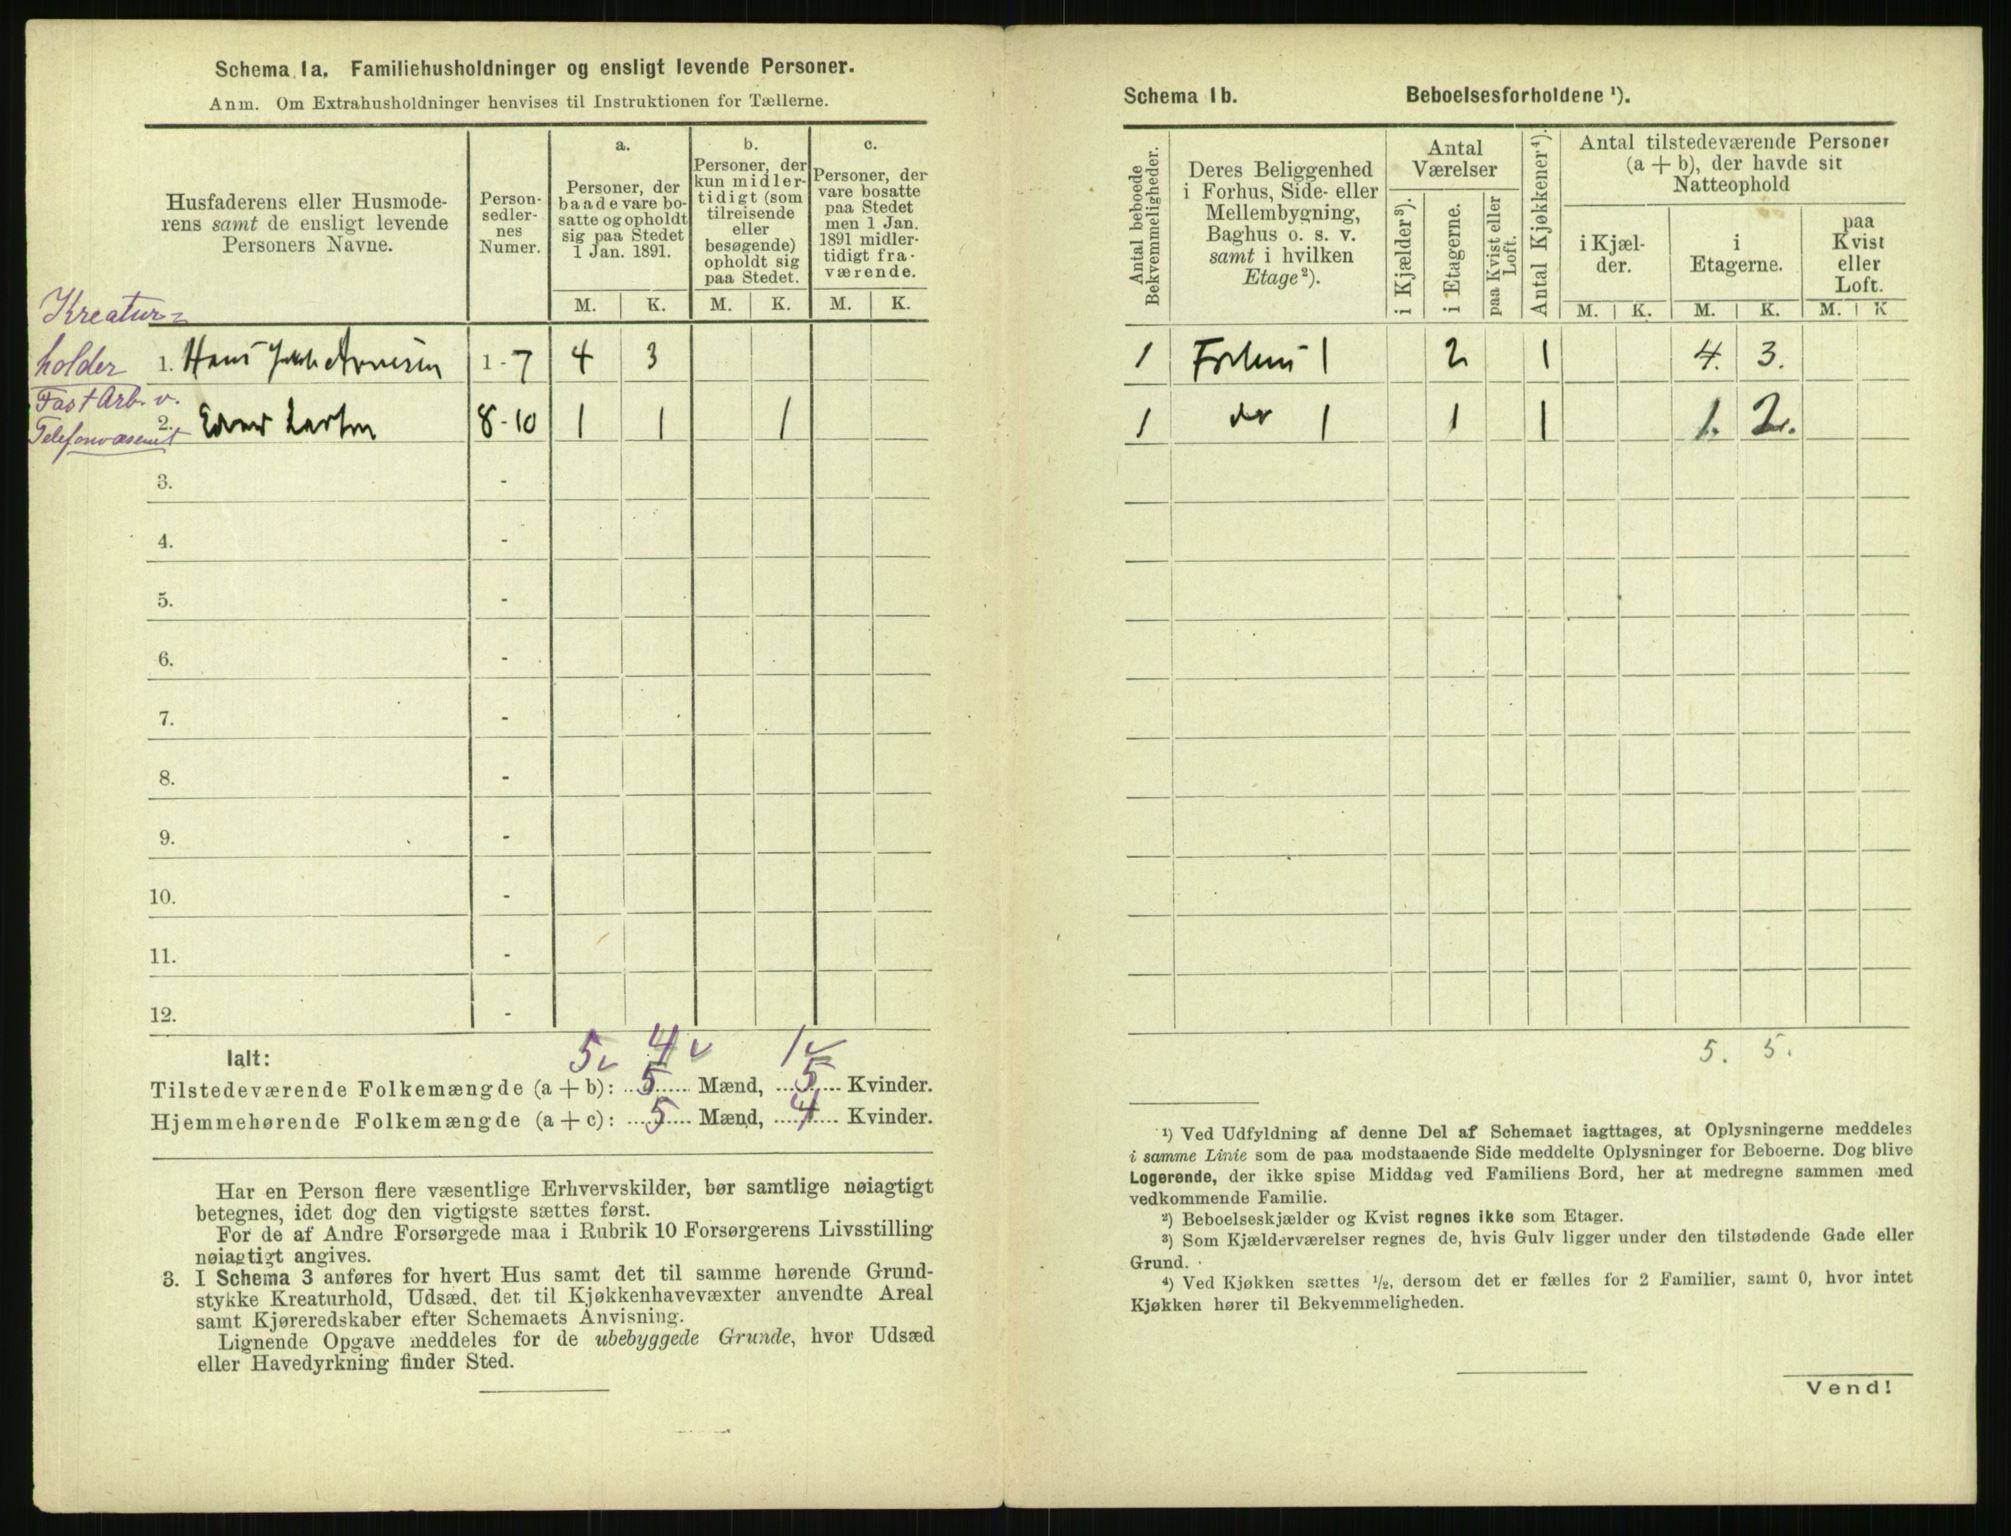 Schema 1a. Familiehusholdninger og ensligt levende Personer.
Anm. Om Extrahusholdninger henvises til Instruktionen for Tællerne.
Husfaderens eller Husmode-
rens samt de ensligt levende
Personers Navne.
Person-
sedler-
nes
Numer.
a.
Personer, der
baade vare bo-
satte og opholdt
sig paa Stedet
1 Jan. 1891.
b.
Personer, der
kun midler-
tidigt (som
tilreisende
eller
besøgende)
opholdt sig
paa Stedet.
c.
Personer, der
vare bosatte
paa Stedet
men 1 Jan.
1891 midler-
tidigt fra-
værende.
M. K. M. K. M. K.
Kreatur-
holder
1. Hans 1 - 7 4 3
Fast Arb. v.
Telefonvæsenet
2. 8 - 10 1 1 1
3. -
4. -
5. -
6. -
7. -
8. -
9. -
10. -
11. -
12. -
Ialt: 5 v 4 v 1 v
Tilstedeværende Folkemængde (a + b): 5 Mænd, 5 Kvinder.
Hjemmehørende Folkemængde (a + c): 5 Mænd, 4 Kvinder.
Har en Person flere væsentlige Erhvervskilder, bør samtlige nøiagtigt
betegnes, idet dog den vigtigste sættes først.
For de af Andre Forsørgede maa i Rubrik 10 Forsørgerens Livsstilling
nøiagtigt angives.
3. I Schema 3 anføres for hvert Hus samt det til samme hørende Grund-
stykke Kreaturhold, Udsæd, det til Kjøkkenhavevæxter anvendte Areal
samt Kjøreredskaber efter Schemaets Anvisning.
Lignende Opgave meddeles for de ubebyggede Grunde, hvor Udsæd
eller Havedyrkning finder Sted.
Schema 1b. Beboelsesforholdene ¹).
Antal beboede
Bekvemmeligheder.
Deres Beliggenhed
i Forhus, Side- eller
Mellembygning,
Baghus o. s. v.
samt i hvilken
Etage²).
Antal
Værelser
i Kjælder³).
i Etagerne.
paa Kvist eller
Loft.
Antal Kjøkkener⁴).
Antal tilstedeværende Personer
(a + b), der havde sit
Natteophold
i Kjæl-
der.
i
Etagerne.
paa
Kvist
eller
Loft.
M. K. M. K. M. K
1 Forhus 1 2 1 4. 3.
1 do 1 1 1 1. 2.
5. 5.
¹) Ved Udfyldning af denne Del af Schemaet iagttages, at Oplysningerne meddeles
i samme Linie som de paa modstaaende Side meddelte Oplysninger for Beboerne. Dog blive
Logerende, der ikke spise Middag ved Familiens Bord, her at medregne sammen med
vedkommende Familie.
²) Beboelseskjælder og Kvist regnes ikke som Etager.
³) Som Kjælderværelser regnes de, hvis Gulv ligger under den tilstødende Gade eller
Grund.
⁴) Ved Kjøkken sættes ½, dersom det er fælles for 2 Familier, samt 0, hvor intet
Kjøkken hører til Bekvemmeligheden.
Vend!